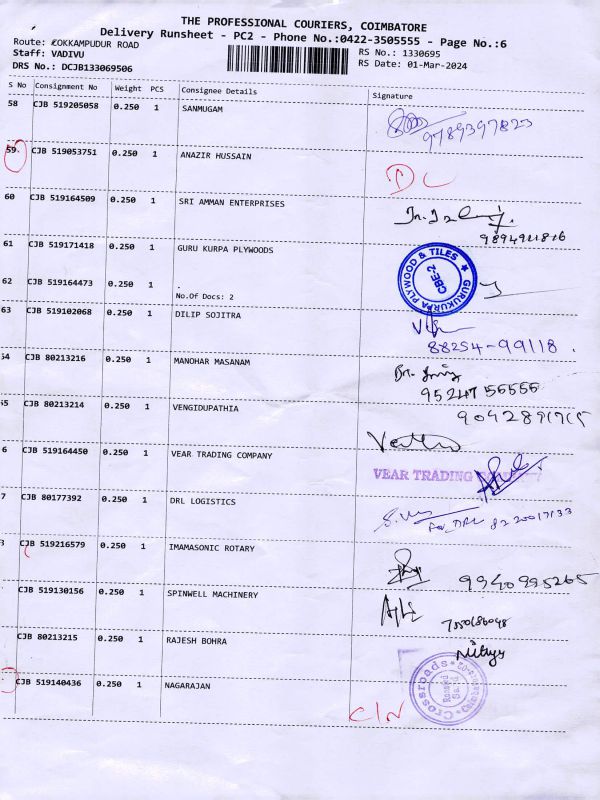 THE PROFESSIONAL COURIERS, COIMBATORE
Delivery Runsheet - PC2 - Phone No.:0422-3505555 - Page No.:6
Route: COKKAMPUDUR ROAD
Staff: VADIVU
DRS No.: DCJB133069506
RS No.: 1330695
RS Date: 01-Mar-2024
S No Consignment No Weight PCS Consignee Details Signature
58 CJB 519205058 0.250 1 SANMUGAM
9789397823
59 CJB 519053751 0.250 1 ANAZIR HUSSAIN
DL
60 CJB 519164509 0.250 1 SRI AMMAN ENTERPRISES
61 CJB 519171418 0.250 1 GURU KURPA PLYWOODS
GURUKURPA PLYWOOD & TILES
CBE-2
62 CJB 519164473 0.250 1 .
No.Of Docs: 2
63 CJB 519102068 0.250 1 DILIP SOJITRA
88254-99118
54 CJB 80213216 0.250 1 MANOHAR MASANAM
55 CJB 80213214 0.250 1 VENGIDUPATHIA
6 CJB 519164450 0.250 1 VEAR TRADING COMPANY
VEAR TRADING
7 CJB 80177392 0.250 1 DRL LOGISTICS
For DRL
3 CJB 519216579 0.250 1 IMAMASONIC ROTARY
9940995265
CJB 519130156 0.250 1 SPINWELL MACHINERY
CJB 80213215 0.250 1 RAJESH BOHRA
Nithya
CJB 519140436 0.250 1 NAGARAJAN
Crossroads
C/N